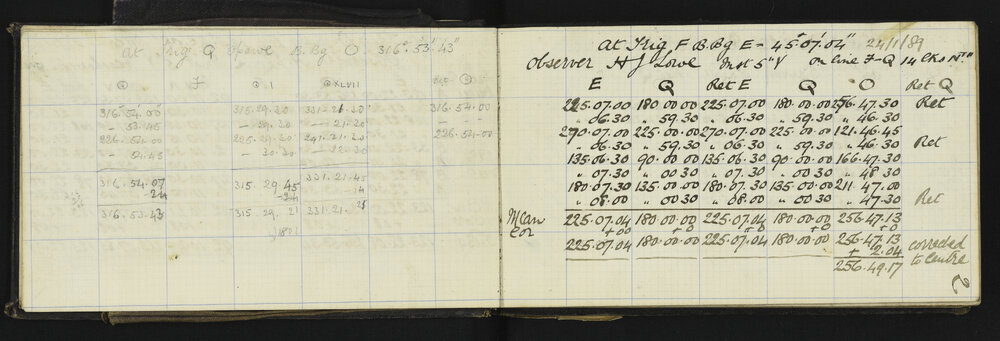 At Trig Q B. Bg O 316° 53' 43"
316.54.00 315.29.30 331.21.30 316.54.00
— 53.45 — 29.30 — 21.30
226.54.00 225.29.30 241.21.30 226.54.00
— 54.45 — 30.30 — 22.30
316.54.07 315.29.45 331.21.45
24 24 24
316.53.43 315.29.21 331.21.21
At Trig F B. Bg E — 45°.07'.04" 24/1/89
Observer H J Lowe Inst 5" Y On line F–Q 14 lks Nth
E Q Ret E Q O Ret Q
225.07.00 180.00.00 225.07.00 180.00.00 256.47.30 Ret
" 06.30 " 59.30 " 06.30 " 59.30 " 46.30
270.07.00 225.00.00 270.07.00 225.00.00 121.46.45
" 06.30 " 59.30 " 06.30 " 59.30 " 46.30 Ret
135.06.30 90.00.00 135.06.30 90.00.00 166.47.30
" 07.30 " 00 30 " 07.30 " 00 30 " 48 30
180.07.30 135.00.00 180.07.30 135.00.00 211.47.00
" 08.00 " 00 30 " 08.00 " 00 30 " 47.30 Ret
Mean 225.07.04 180.00.00 225.07.04 180.00.00 256.47.13
Cor +00 +0 +0 +0 +0
225.07.04 180.00.00 225.07.04 180.00.00 256.47.13 corrected
+ 2.04 to Centre
256.49.17